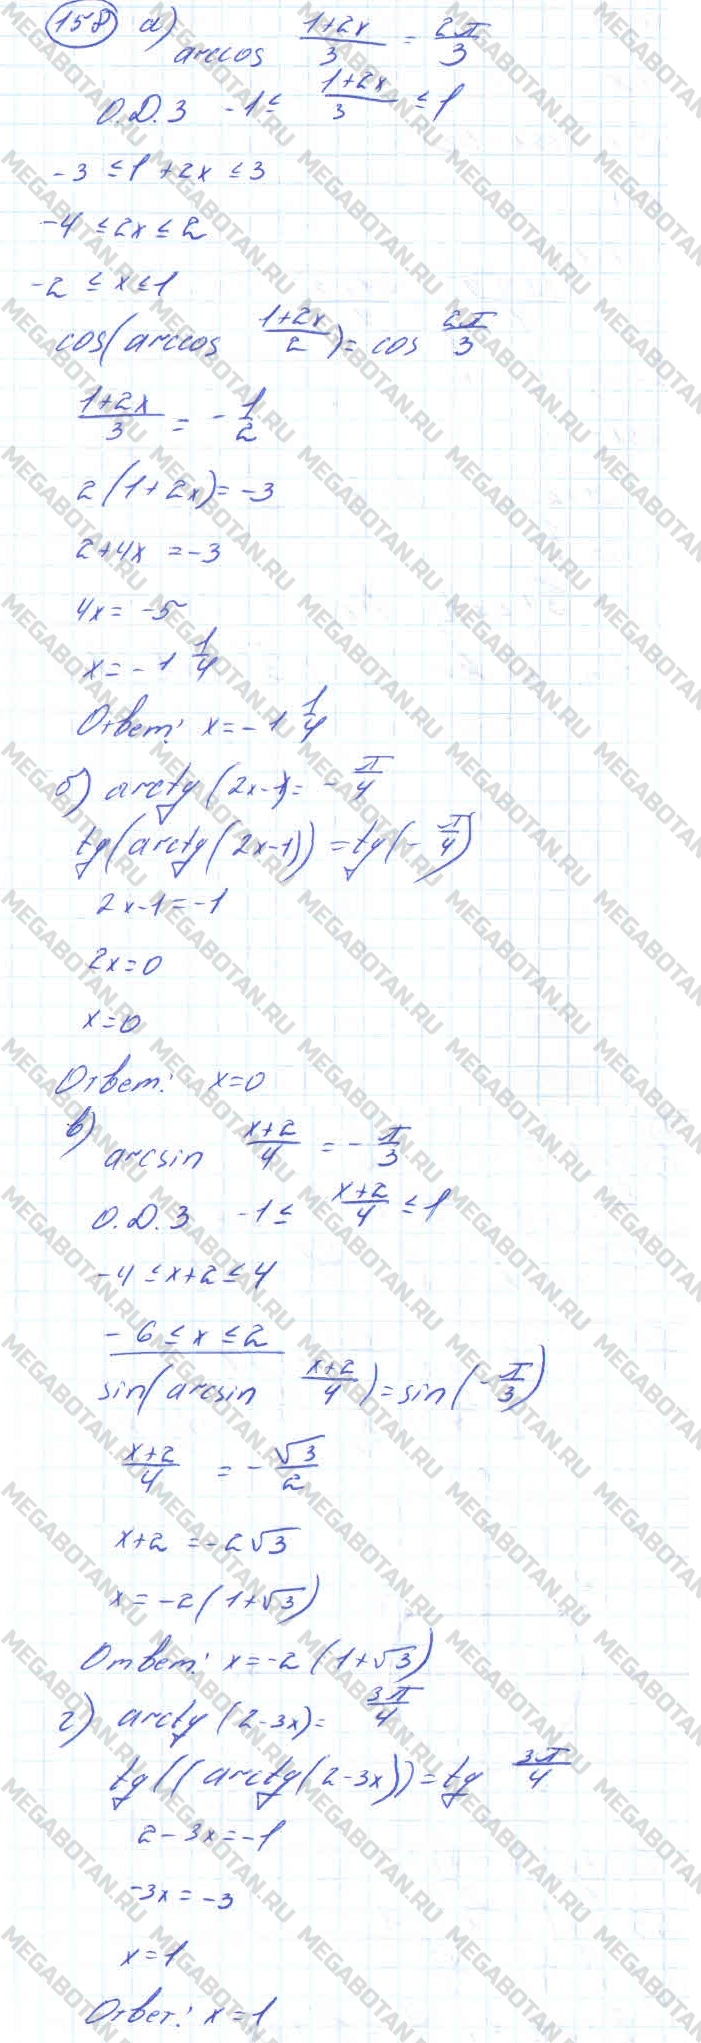 158 а) arccos (1+2x)/3 = 2π/3
О.Д.З -1 ≤ (1+2x)/3 ≤ 1
-3 ≤ 1+2x ≤ 3
-4 ≤ 2x ≤ 2
-2 ≤ x ≤ 1
cos(arccos (1+2x)/2) = cos 2π/3
(1+2x)/3 = -1/2
2(1+2x) = -3
2+4x = -3
4x = -5
x = -1 1/4
Ответ: x = -1 1/4
б) arctg(2x-1) = -π/4
tg(arctg(2x-1)) = tg(-π/4)
2x-1 = -1
2x = 0
x = 0
Ответ: x=0
в) arcsin (x+2)/4 = -π/3
О.Д.З -1 ≤ (x+2)/4 ≤ 1
-4 ≤ x+2 ≤ 4
-6 ≤ x ≤ 2
sin(arcsin (x+2)/4) = sin(-π/3)
(x+2)/4 = -√3/2
x+2 = -2√3
x = -2(1+√3)
Ответ: x = -2(1+√3)
г) arctg(2-3x) = 3π/4
tg((arctg(2-3x)) = tg 3π/4
2-3x = -1
-3x = -3
x = 1
Ответ: x = 1
MEGABOTAN.RU